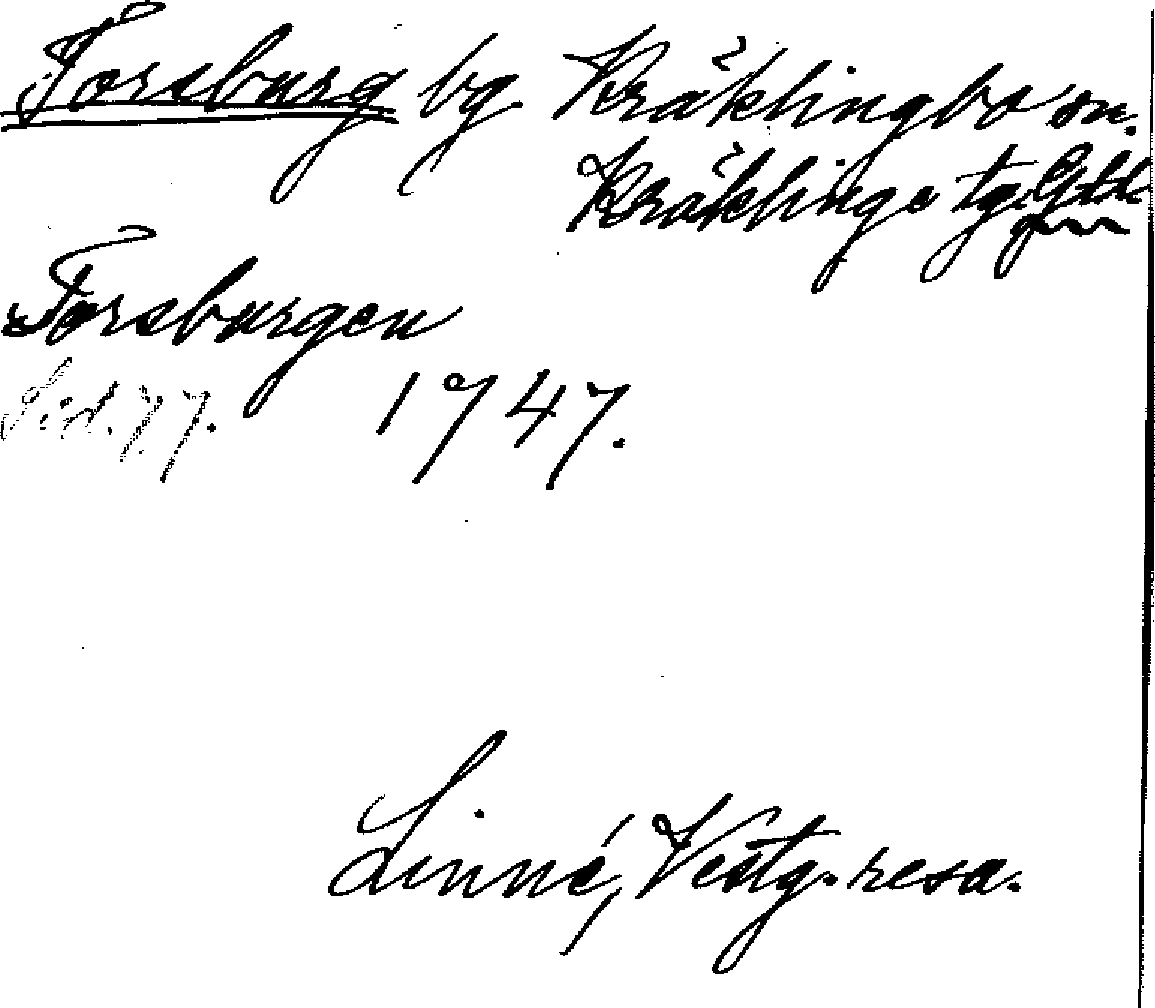 Torsburg bg Kräklingbo sn.
Kräklinge tg. Gtl.
Torsburgen
Sid. 77. 1747.
Linné, Vestg. resa.